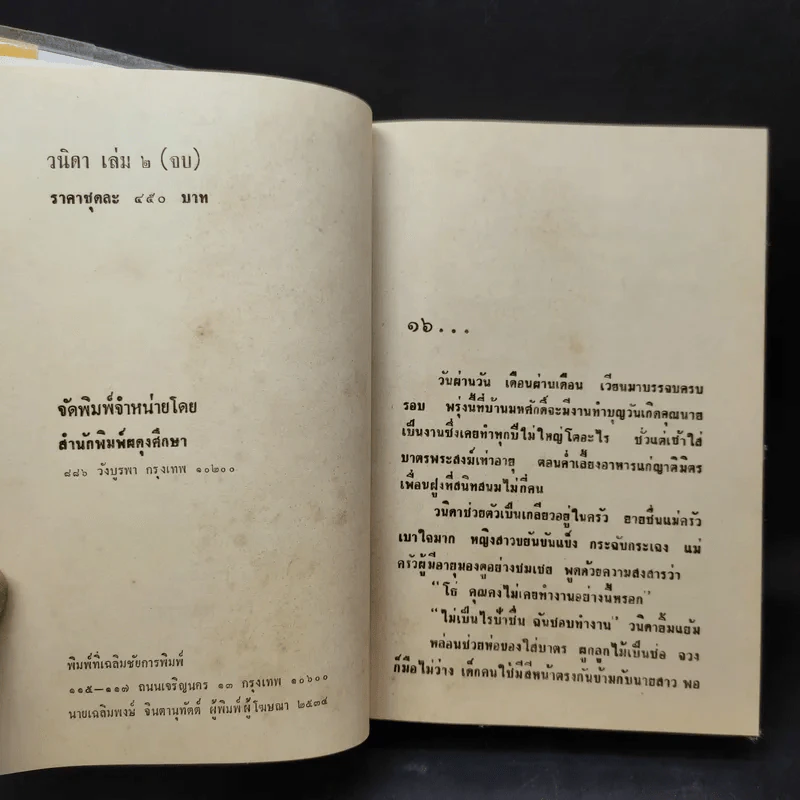 วนิดา เล่ม ๒ (จบ)
ราคาชุดละ ๔๕๐ บาท
จัดพิมพ์จำหน่ายโดย
สำนักพิมพ์ผดุงศึกษา
๘๘๖ วังบูรพา กรุงเทพ ๑๐๒๐๐
พิมพ์ที่เฉลิมชัยการพิมพ์
๑๑๕—๑๑๗ ถนนเจริญนคร ๑๓ กรุงเทพ ๑๐๖๐๐
นายเฉลิมพงษ์ จินตานุทัตต์ ผู้พิมพ์ผู้โฆษณา ๒๕๓๔
๑๖...
วันผ่านวัน เดือนผ่านเดือน เวียนมาบรรจบครบ
รอบ พรุ่งนี้ที่บ้านมหศักดิ์จะมีงานทำบุญวันเกิดคุณนาย
เป็นงานซึ่งเคยทำทุกปีไม่ใหญ่โตอะไร ชั่วแต่เช้าใส่
บาตรพระสงฆ์เท่าอายุ ตอนค่ำเลี้ยงอาหารแก่ญาติมิตร
เพื่อนฝูงที่สนิทสนมไม่กี่คน
วนิดาช่วยตัวเป็นเกลียวอยู่ในครัว ยายชื่นแม่ครัว
เบาใจมาก หญิงสาวขยันขันแข็ง กระฉับกระเฉง แม่
ครัวผู้มีอายุมองดูอย่างชมเชย พูดด้วยความสงสารว่า
"โธ่ คุณคงไม่เคยทำงานอย่างนี้หรอก"
"ไม่เป็นไรป้าชื่น ฉันชอบทำงาน" วนิดายิ้มแย้ม
หล่อนช่วยห่อของใส่บาตร ผูกลูกไม้เป็นช่อ ฉวง
ก็มือไม่ว่าง เด็กคนใช้มีสีหน้าตรงกันข้ามกับนายสาว พอ